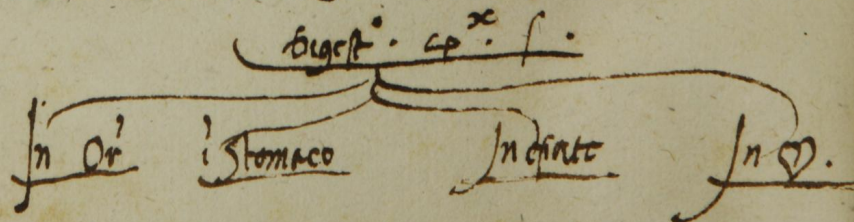 Digest°. cpˣ. f.
In Or' i' Stomaco In epate In m.